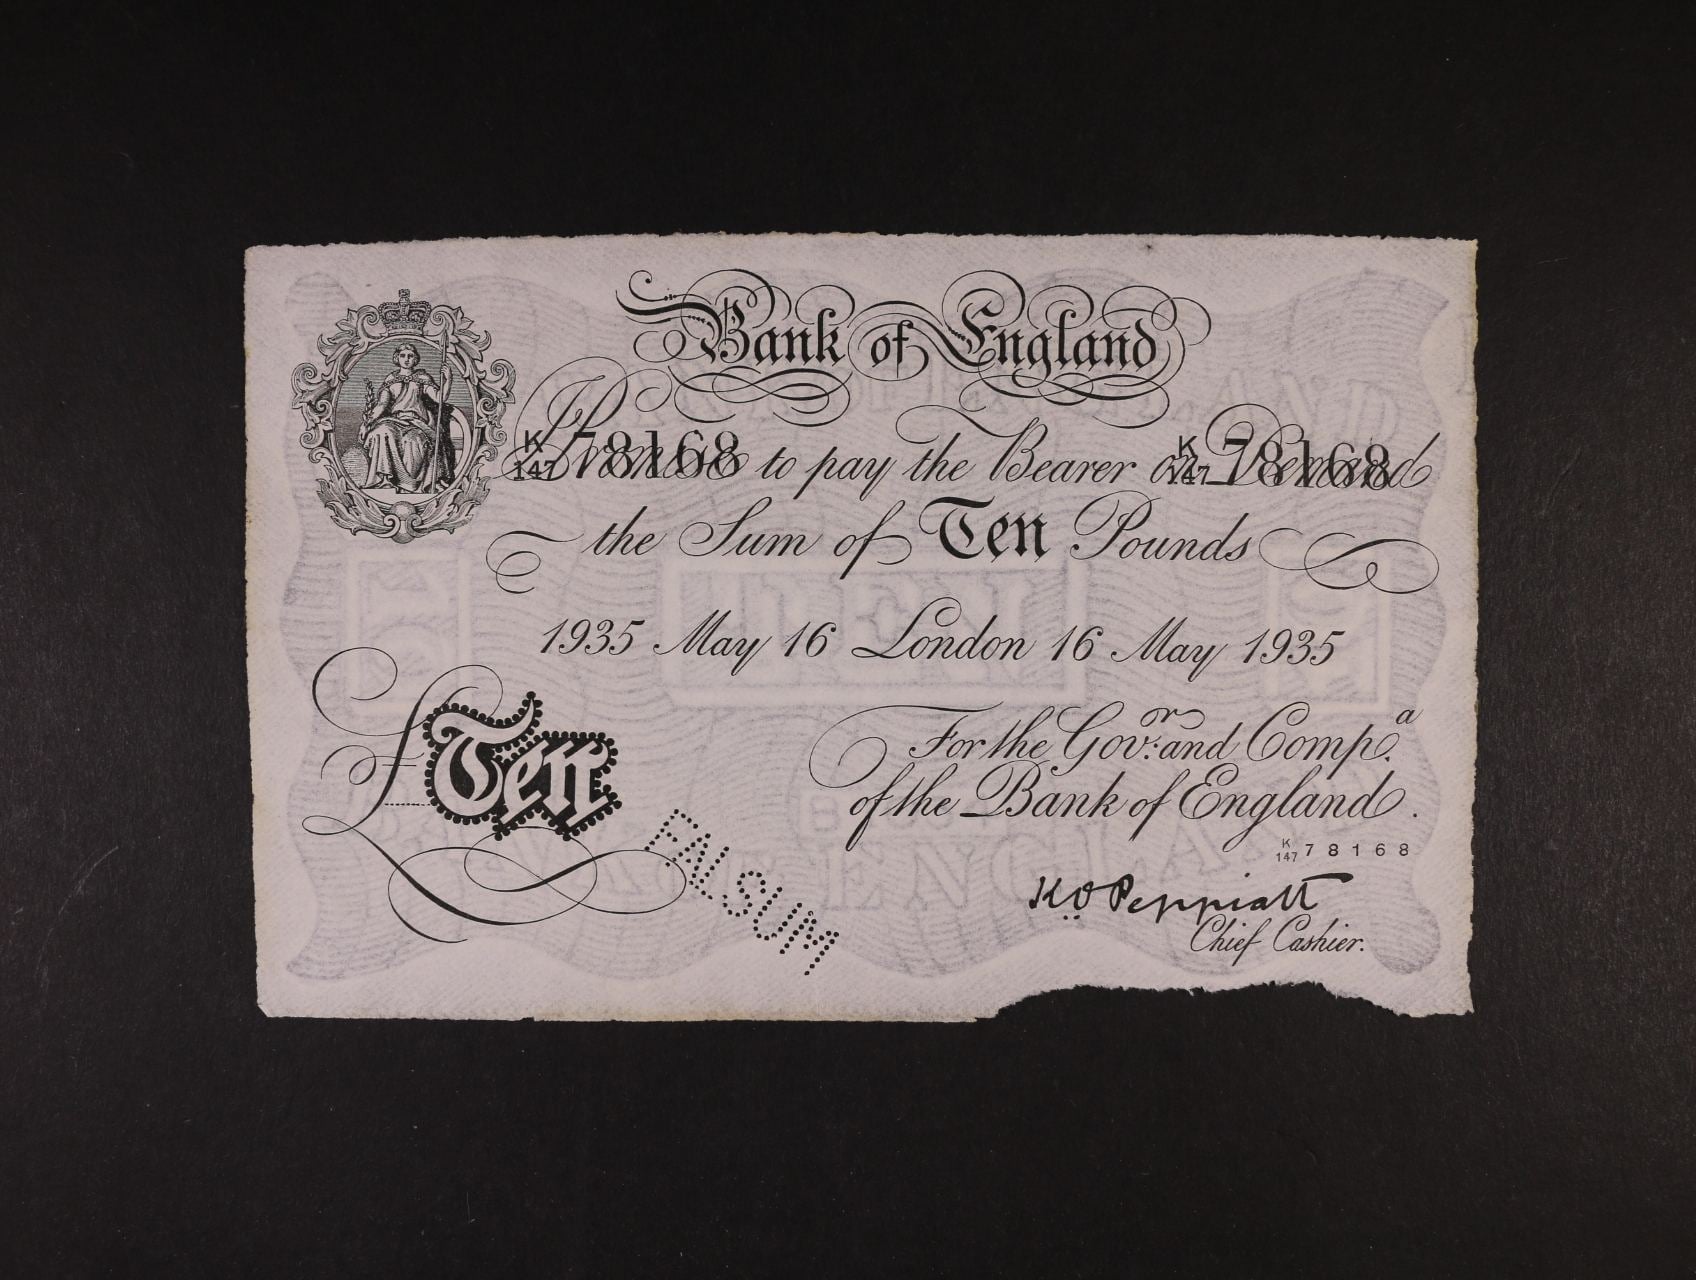 Bank of England
K/147 78168 K/147 78168
I Promise to pay the Bearer on Demand
the Sum of Ten Pounds
1935 May 16 London 16 May 1935
£Ten
For the Gov:or and Comp.a
of the Bank of England.
K/147 78168
K.O. Peppiatt
Chief Cashier.
FALSUM